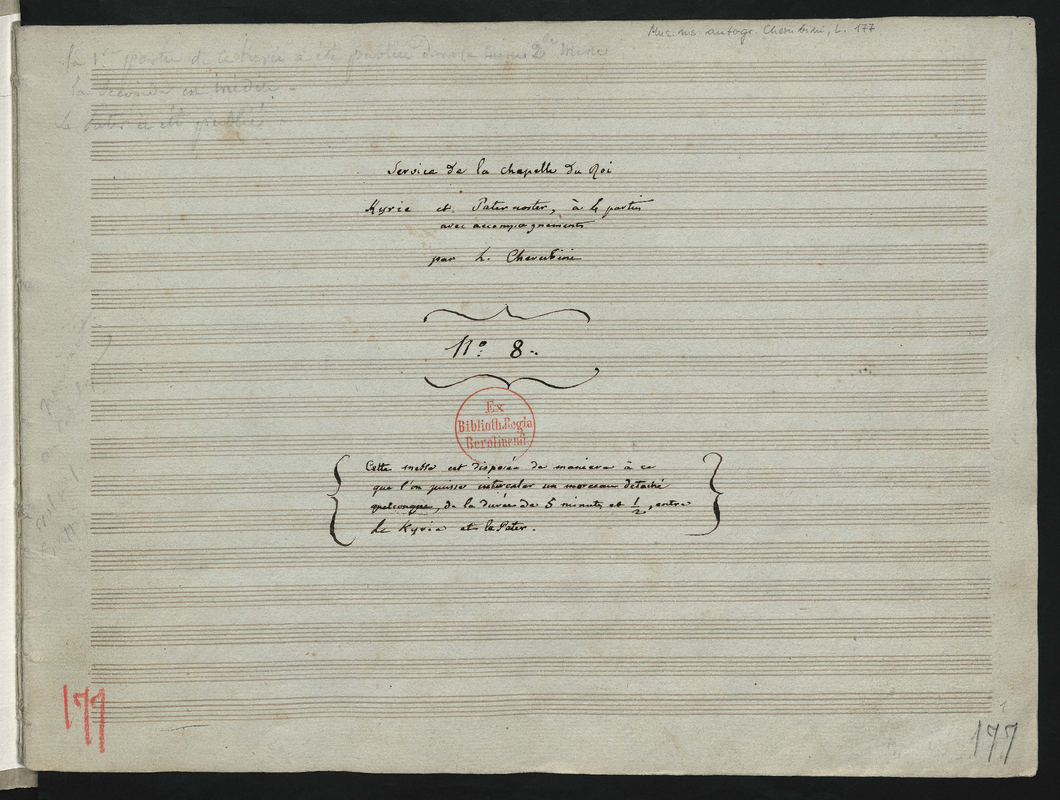 Mus. ms. autogr. Cherubini, L. 177
la 1ère partie de ce Kyrie a été publiée dans la
la seconde est inédite -
le Pater a été publié
Service de la chapelle du Roi
Kyrie et Pater noster, à 4 parties
avec accompagnements
par L. Cherubini
Nº 8.
Ex
Biblioth. Regia
Berolinenſi
Cette messe est disposée de maniere à ce
que l'on puisse intercaler un morceau détaché
quelconque, de la durée de 5 minutes et 1/2, entre
le Kyrie et le Pater.
177
1
177